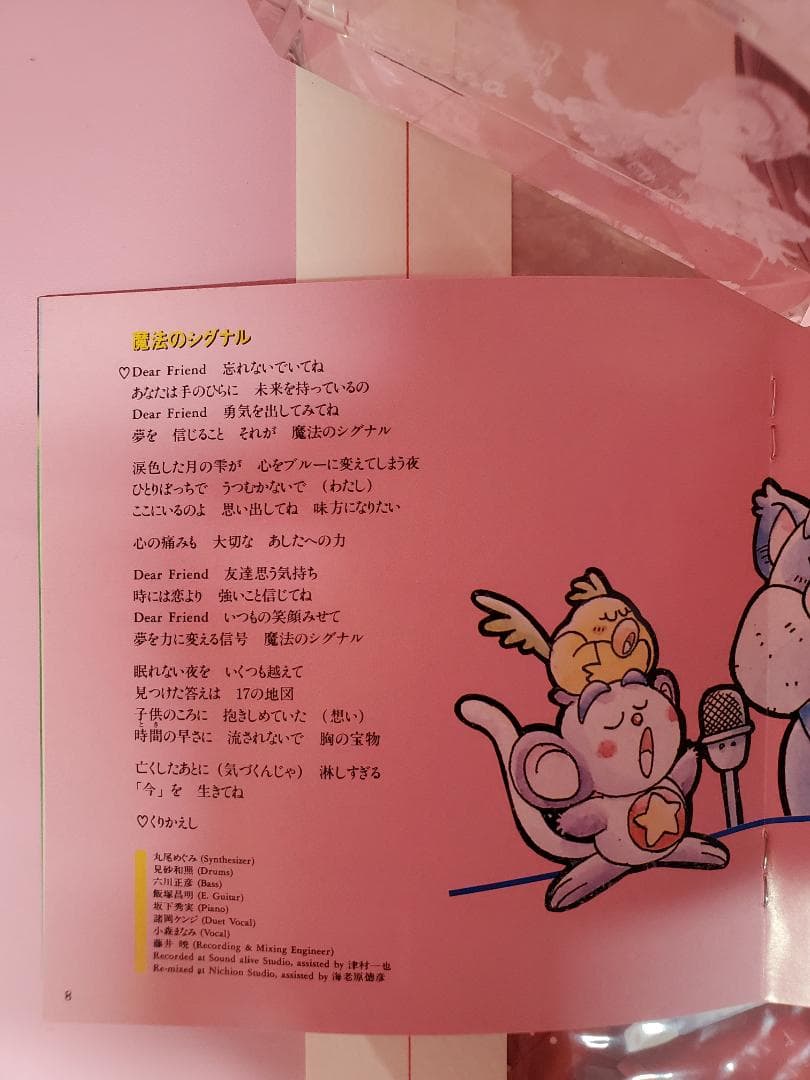 魔法のシグナル
♡Dear Friend 忘れないでいてね
あなたは手のひらに 未来を持っているの
Dear Friend 勇気を出してみてね
夢を 信じること それが 魔法のシグナル
涙色した月の雫が 心をブルーに変えてしまう夜
ひとりぼっちで うつむかないで (わたし)
ここにいるのよ 思い出してね 味方になりたい
心の痛みも 大切な あしたへの力
Dear Friend 友達思う気持ち
時には恋より 強いこと信じてね
Dear Friend いつもの笑顔みせて
夢を力に変える信号 魔法のシグナル
眠れない夜を いくつも越えて
見つけた答えは 17の地図
子供のころに 抱きしめていた (想い)
時間の早さに 流されないで 胸の宝物
とき
亡くしたあとに (気づくんじゃ) 淋しすぎる
「今」を 生きてね
♡くりかえし
丸尾めぐみ (Synthesizer)
見砂和照 (Drums)
六川正彦 (Bass)
飯塚昌明 (E. Guitar)
坂下秀実 (Piano)
諸岡ケンジ (Duet Vocal)
小森まなみ (Vocal)
藤井 暁 (Recording & Mixing Engineer)
Recorded at Sound alive Studio, assisted by 津村一也
Re-mixed at Nichion Studio, assisted by 海老原徳彦
8